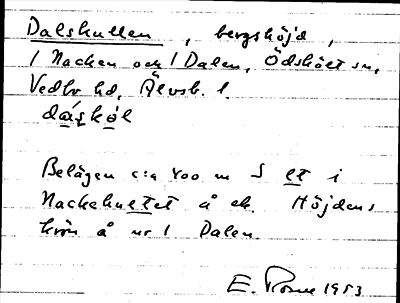 Dalskullen, bergshöjd,
1 Nacken och 1 Dalen, Ödskölt sn,
Vedbo hd, Älvsb. l.
Belägen c:a 400 m S lt i
Nackehultet å ek. Höjdens
krön å nr 1 Dalen.
E. 1953